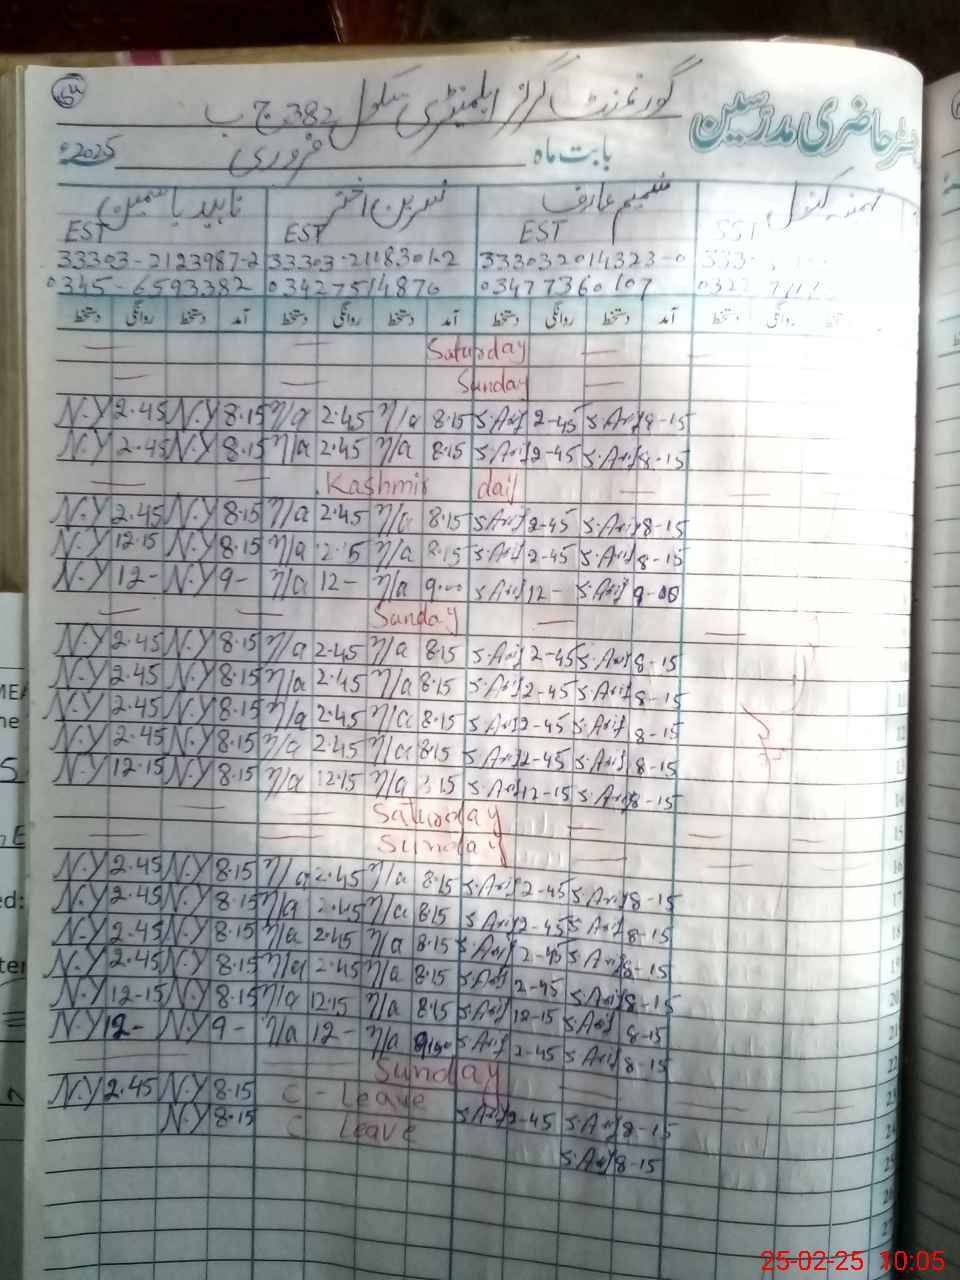 54
رجسٹر حاضری مدرسین
گورنمنٹ گرلز ایلمنٹری سکول 382 ج ب
بابت ماہ فروری 2025ء
کنول شمیم عارف نسرین اختر ناہید یاسمین
EST EST EST SST
33303-2123987-2 33303-2118301-2 333032014323-0
0345-6593382 03427514870 03477360107
آمد دستخط روانگی دستخط آمد دستخط روانگی دستخط آمد دستخط روانگی دستخط
Saturday
Sunday
N.Y 2.45 N.Y 8.15 n/a 2.45 n/a 8.15 S.Arif 2-45 S.Arif 8-15
N.Y 2.45 N.Y 8.15 n/a 2.45 n/a 8.15 S.Arif 2-45 S.Arif 8-15
Kashmir day
N.Y 2.45 N.Y 8.15 n/a 2.45 n/a 8.15 S.Arif 2-45 S.Arif 8-15
N.Y 12.15 N.Y 8.15 n/a n/a 8.15 S.Arif 2-45 S.Arif 8-15
N.Y 12- N.Y 9- n/a 12- n/a 9.00 S.Arif 12- S.Arif 9-00
Sunday
N.Y 2.45 N.Y 8.15 n/a 2.45 n/a 8.15 S.Arif 2-45 S.Arif 8-15
N.Y 2.45 N.Y 8.15 n/a 2.45 n/a 8.15 S.Arif 2-45 S.Arif 8-15
N.Y 2.45 N.Y 8.15 n/a 2.45 n/a 8.15 S.Arif 2-45 S.Arif 8-15
N.Y 2.45 N.Y 8.15 n/a 2.45 n/a 8.15 S.Arif 2-45 S.Arif 8-15
N.Y 12.15 N.Y 8.15 n/a 12.15 n/a 8.15 S.Arif 12-15 S.Arif 8-15
Saturday
Sunday
N.Y 2.45 N.Y 8.15 n/a 2.45 n/a 8.15 S.Arif 2-45 S.Arif 8-15
N.Y 2.45 N.Y 8.15 n/a 2.45 n/a 8.15 S.Arif 2-45 S.Arif 8-15
N.Y 2.45 N.Y 8.15 n/a 2.45 n/a 8.15 S.Arif 2-45 S.Arif 8-15
N.Y 2.45 N.Y 8.15 n/a 2.45 n/a 8.15 S.Arif 2-45 S.Arif 8-15
N.Y 12-15 N.Y 8.15 n/a 12.15 n/a 8.15 S.Arif 12-15 S.Arif 8-15
N.Y 12- N.Y 9- n/a 12- n/a S.Arif 2-45 S.Arif 8-15
Sunday
N.Y 2.45 N.Y 8.15 C - Leave S.Arif 2-45 S.Arif 8-15
N.Y 8.15 C Leave S.Arif 8-15
25-02-25 10:05